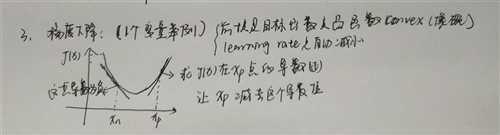 3. 梯度下降：(1个变量举例) 前提是目标函数是凸函数convex (碗碗)
learning rate是自动减小
J(θ)
这点导数为负
求J(θ)在xp点的导数值
让 xp 减去这个导数值
xn
xp